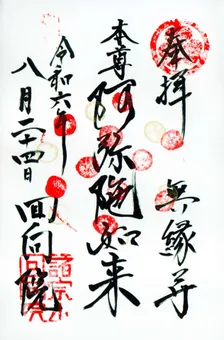 奉拝
無縁寺
本尊阿弥陀如来
令和六年
八月二十四日
回向院
諸宗山
回向院